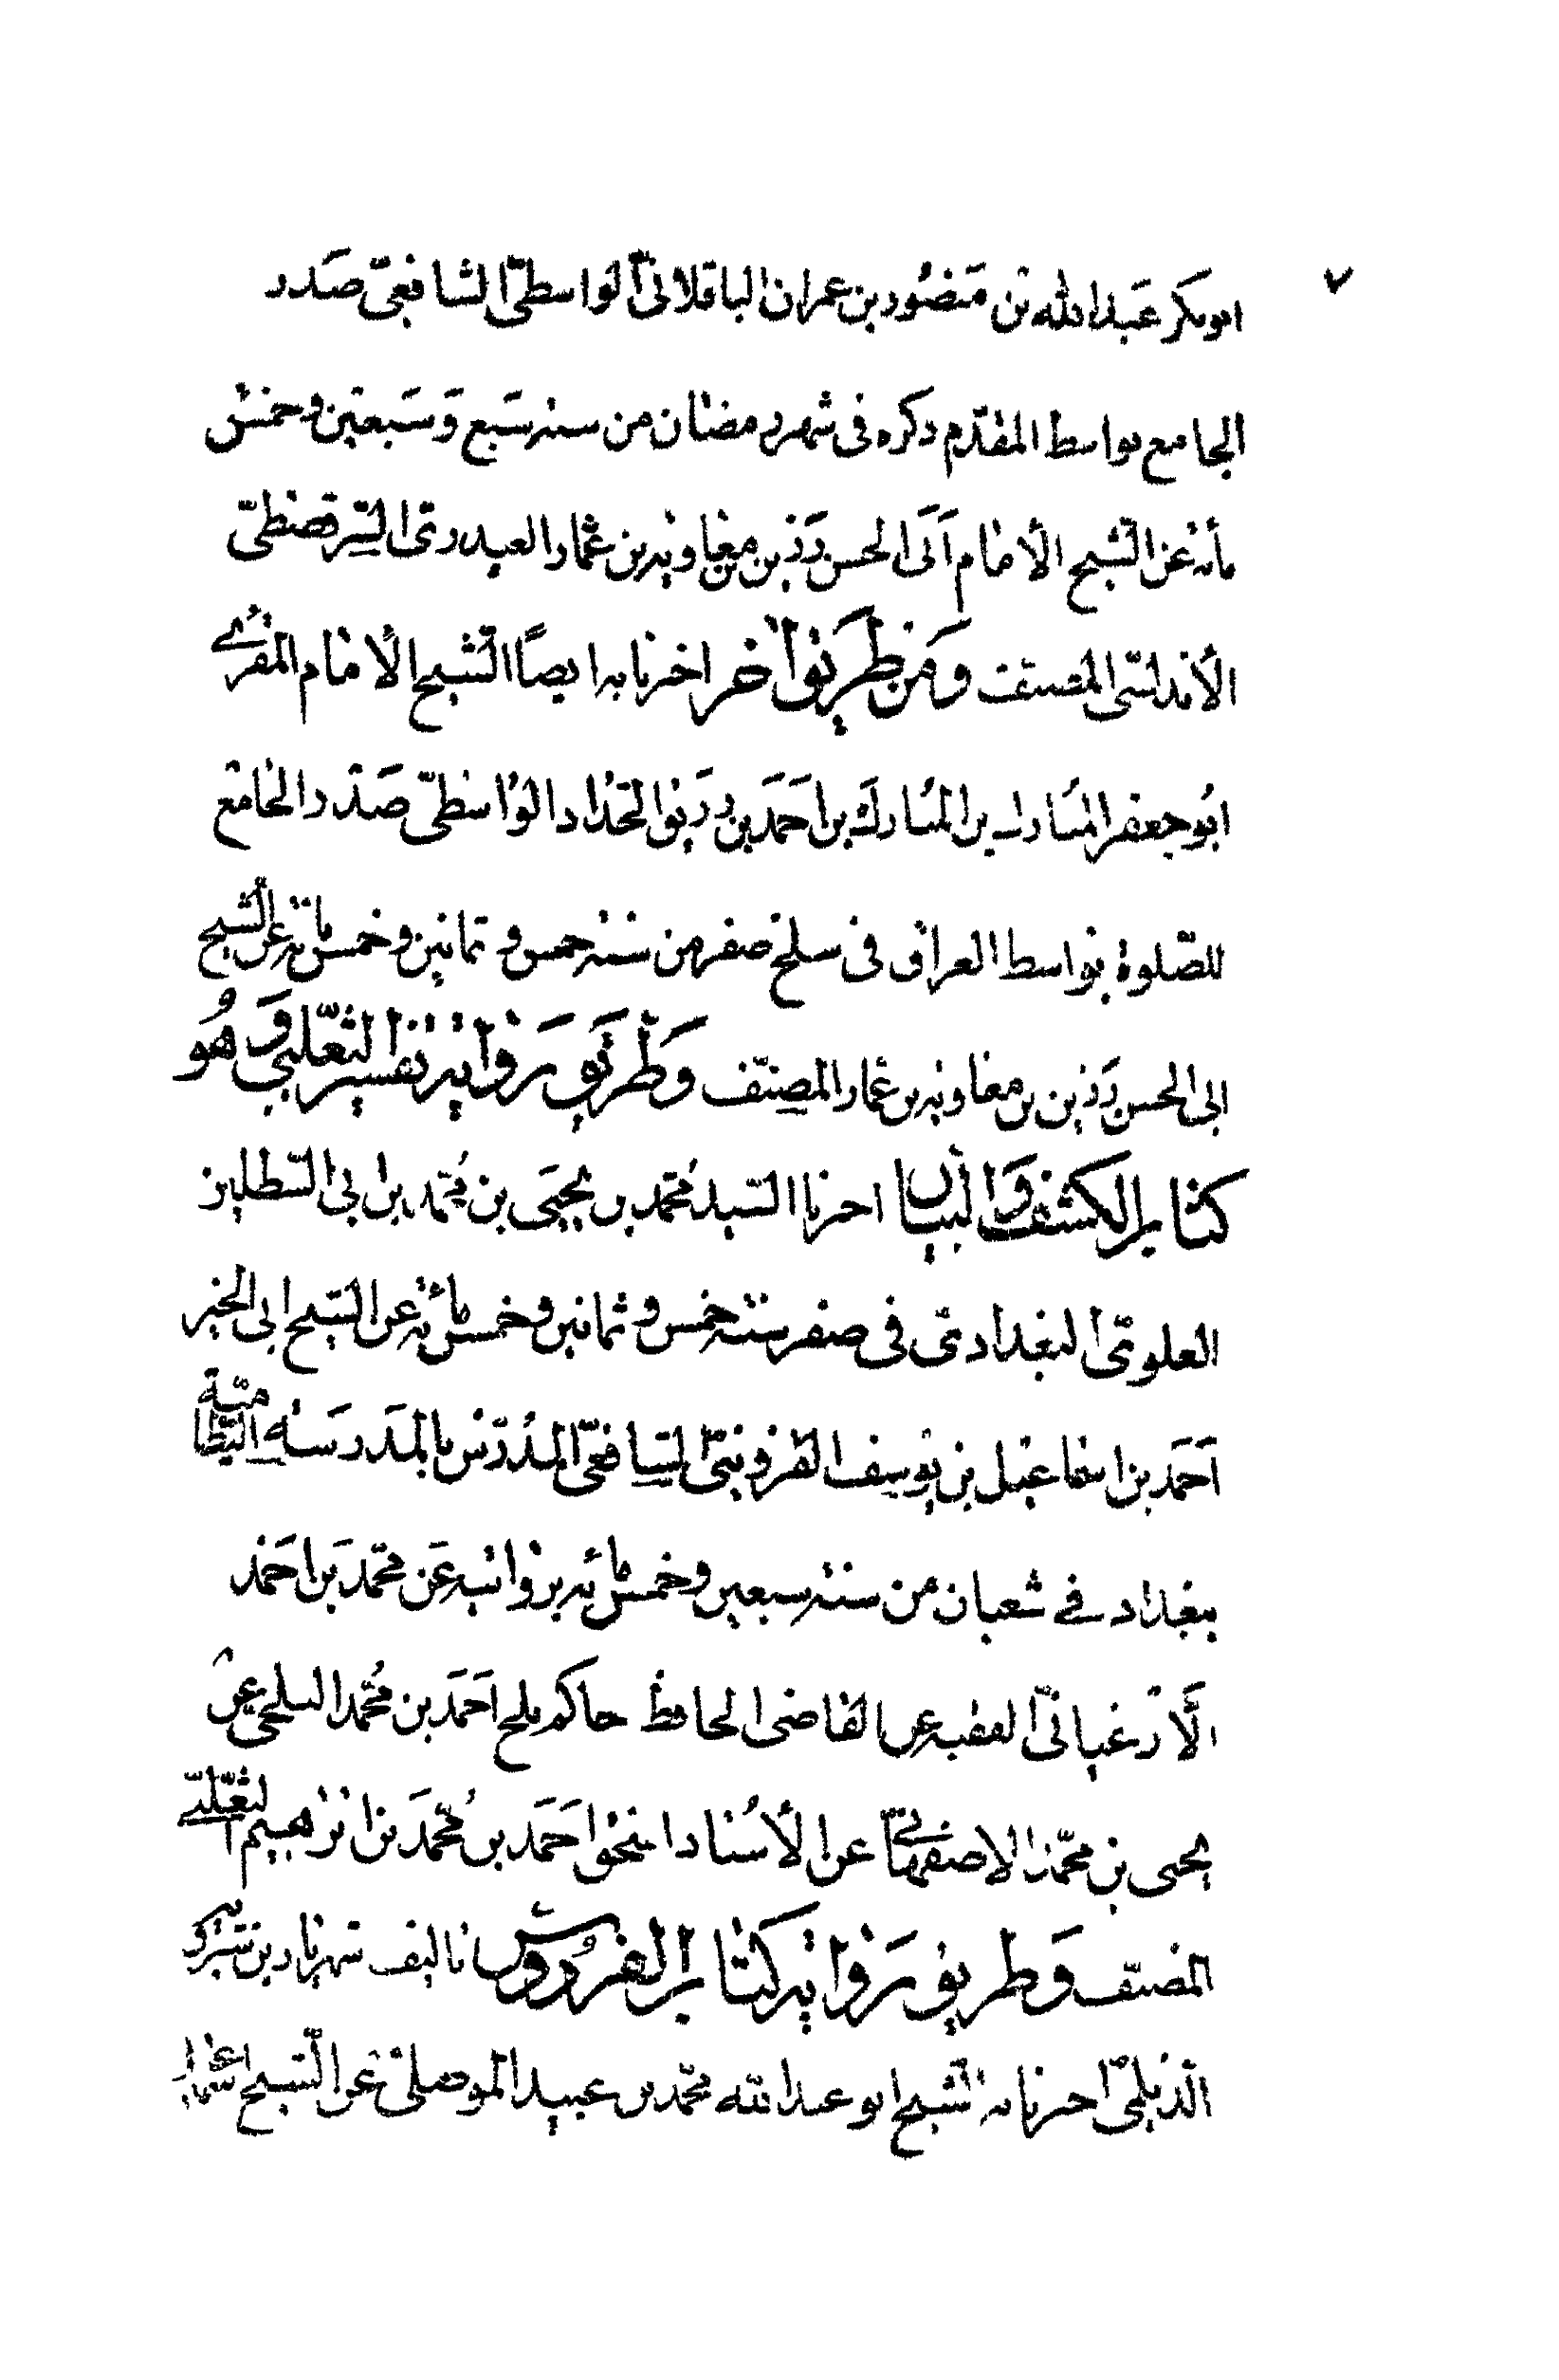 ٧
ابوبكر عبدالله بن منصور بن عمران الباقلانىّ الواسطىّ الشافعىّ صدر
الجامع بواسط المقدّم ذكره فى شهر رمضان من سنة سَبع وَسَبعين وخمس
مأية عن الشيخ الأمام اَبى الحسن رَزين بن معاوية بن عمّار العبدرىّ السّرقسطىّ
الأندلسىّ المصنف وَمن طَريق اخر اخبرنا به ايضًا الشّيخ الأمام المقرئ
ابُو جعفر المبارك بن المُبارك بن احَمَد بن زريق الحَدّاد الواسطىّ صَدر الجامع
للصّلوة بواسط العراق فى سلخ صفر من سنة خمس و ثمانين وخمس مائة عن الشيخ
ابى الحسن رَزين بن معاوية بن عمّار المصنّف وَطَريق رَواية تفسير الثعلبىّ وَهُو
كتاب الكشف وَالبيان اخبرنا السّيد مُحمّد بن يحيَى بن مُحمّد بن ابى السّطلين
العلوىّ البغدادىّ فى صفر سنة خمس و ثمانين وخمس مائة عن الشيخ ابى الخير
اَحمَد بن اسماعيل بن يوسف القزوينىّ الشافعىّ المُدرّس بالمَدرسَة النظّامية
ببغداد فى شعبان من سنة سبعين وخمس مائة بروايته عَن محمّد بَن احَمَد
الَأرغيانىّ الفقيه عن القاضى الحافظ حاكم بلخ احَمَد بن مُحمّد البلخى عن
يحيى بن محمّد الاصفهانىّ عن الأستاد اسحق احَمَد بن مُحمّدَ بن ابرهيم الثعلبىّ
المصنف وَطريق رَواية كتاب الفردوس تاليف شهريار بن شيرويه
الدّيلمىّ اخبرنا به الشيخ ابو عبدالله محمّد بن عبيد الموصلىّ عن الشّيخ